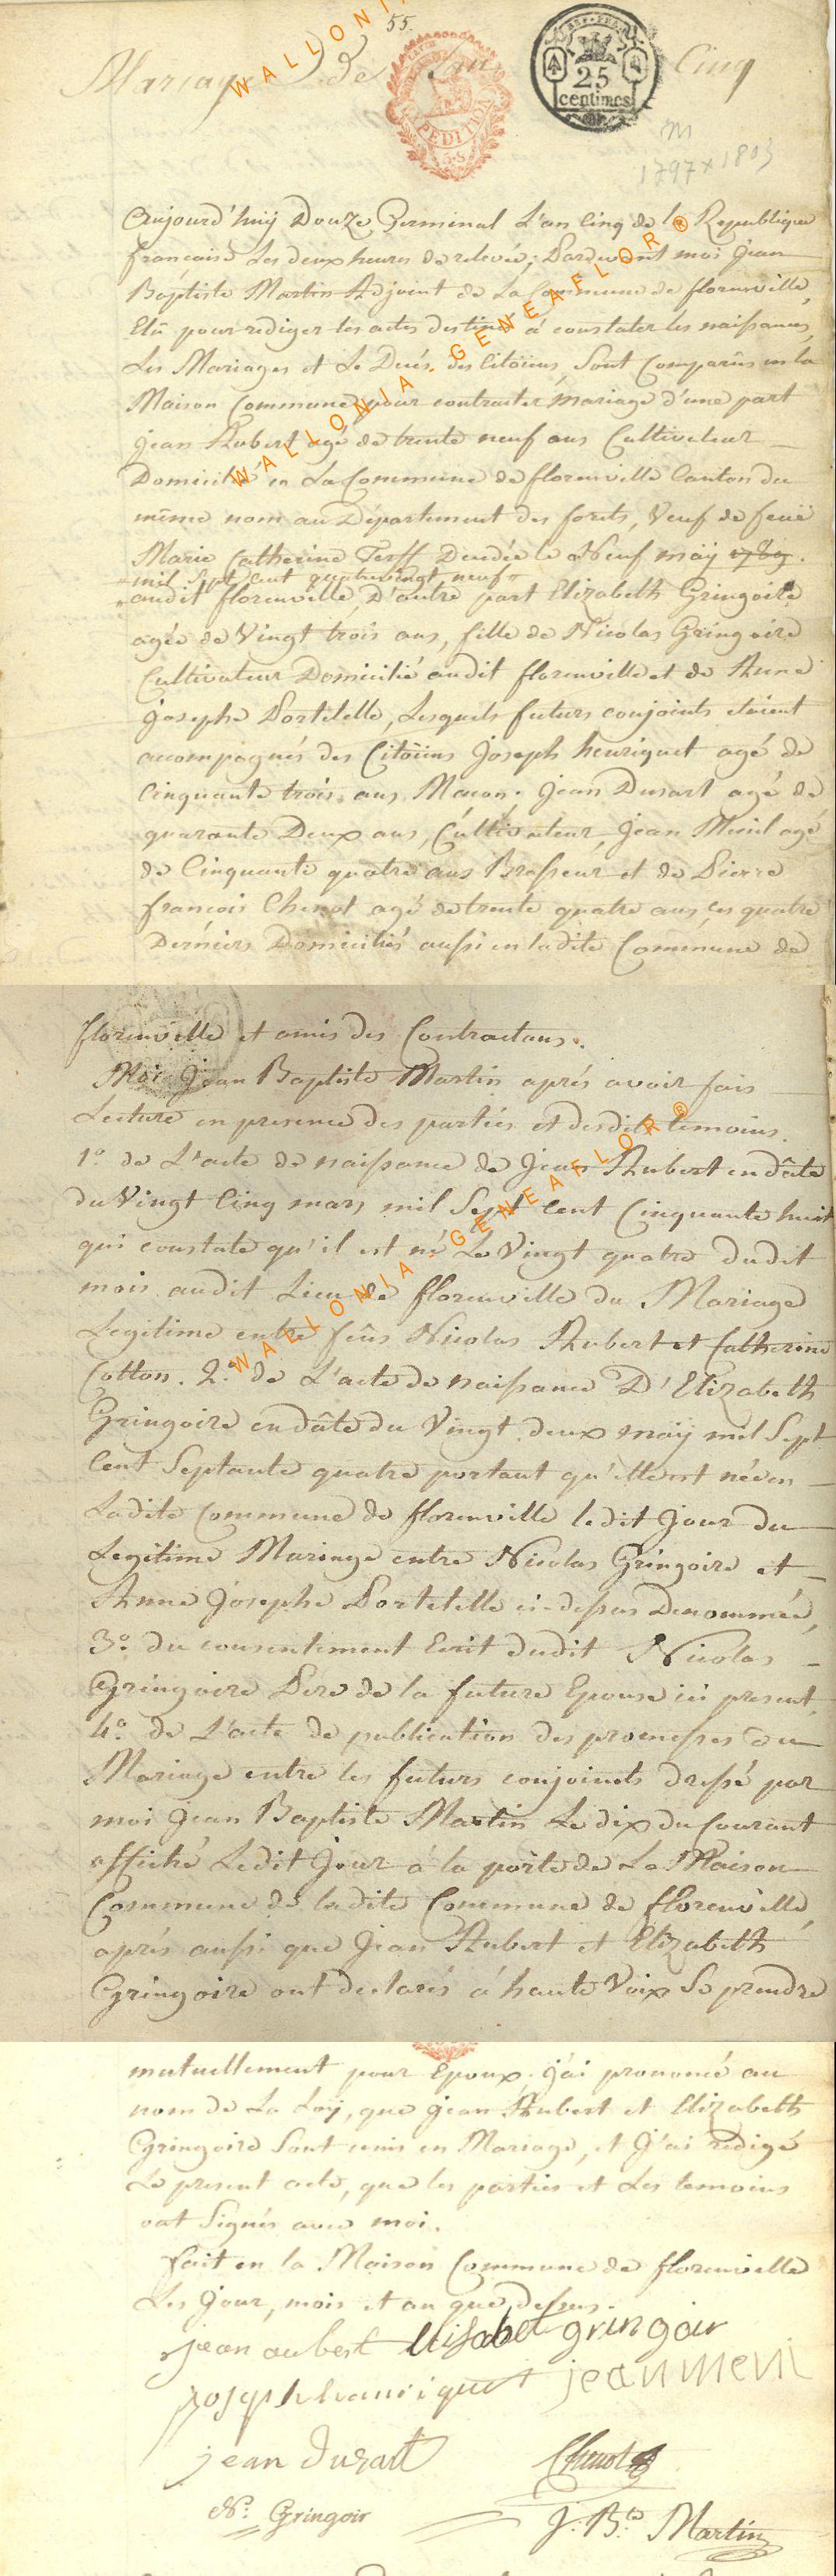 55.
Mariage de L'an Cinq
25
centimes
m
1797 x 1803
WALLONIA GENEAFLOR ®
Aujourd'huÿ Douze Germinal L'an Cinq de la Republique
françoise Les deux heures de relevée, Pardevant moi Jean
Baptiste Martin Adjoint de La Commune de florenville,
Elû pour rediger les actes destinés à constater les naissances,
Les Mariages et Le Decés des Citöiens, Sont Comparûs en la
Maison Commune pour contracter Mariage d'une part
Jean Aubert agé de trente neuf ans Cultivateur
Domicilié en La Commune de florenville Canton du
même nom au Département des forets, Veuf de feuë
Marie Catherine Terff Decedée le Neuf maÿ 1789.
mil Sept cent quatrevingt neuf
audit florenville, D'autre part Elizabeth Gringoire
agée de Vingt trois ans, fille de Nicolas Gringoire
Cultivateur Domicilié audit florenville et de Anne
Josephe Portelelle, Lesquels futurs conjoints etoient
accompagnés des Citöiens Joseph henriquet agé de
Cinquante trois ans Macon, Jean Dusart agé de
quarante Deux ans, Cultivateur, Jean Menil agé
de Cinquante quatre ans Brasseur et de Pierre
françois Chenot agé de trente quatre ans, ces quatre
Derniers Domiciliés aussi en ladite Commune de
florenville et amis des Contractans.
Moi Jean Baptiste Martin aprés avoir fais
Lecture en presence des parties et desdits temoins.
1.° de L'acte de naissance de Jean Aubert en dâte
du Vingt Cinq mars mil Sept Cent Cinquante huit
qui constate qu'il est né Le Vingt quatre dudit
mois audit Lieu de florenville du Mariage
Legitime entre feûs Nicolas Aubert et Catherine
Cotton. 2.° de L'acte de naissance D'Elizabeth
Gringoire en dâte du Vingt deux maÿ mil Sept
Cent Septante quatre portant qu'elle est née en
Ladite Commune de florenville ledit Jour du
Legitime Mariage entre Nicolas Gringoire et
Anne Josephe Portelelle ci-dessus Denommée,
3.° du consentement Ecrit dudit Nicolas
Gringoire Pere de la future Epouse ici present,
4.° de L'acte de publication des promesses du
Mariage entre les futurs conjoints dressé par
moi Jean Baptiste Martin Le dix du Courant
affiché Ledit Jour à la porte de La Maison
Commune de ladite Commune de florenville,
aprés aussi que Jean Aubert et Elizabeth
Gringoire ont declarés à haute Voix Se prendre
mutuellement pour Epoux, j'ai prononcé au
nom de La Loÿ, que Jean Aubert et Elizabeth
Gringoire Sont unis en Mariage, et J'ai redigé
Le present acte, que les parties et Les temoins
ont Signés avec moi.
fait en la Maison Commune de florenville
Les Jour, mois et an que dessus.
jean aubert Elisabet gringoir
Joseph hanriquet jean menil
jean Dusart Chenot
N: Gringoir J: B.te Martin